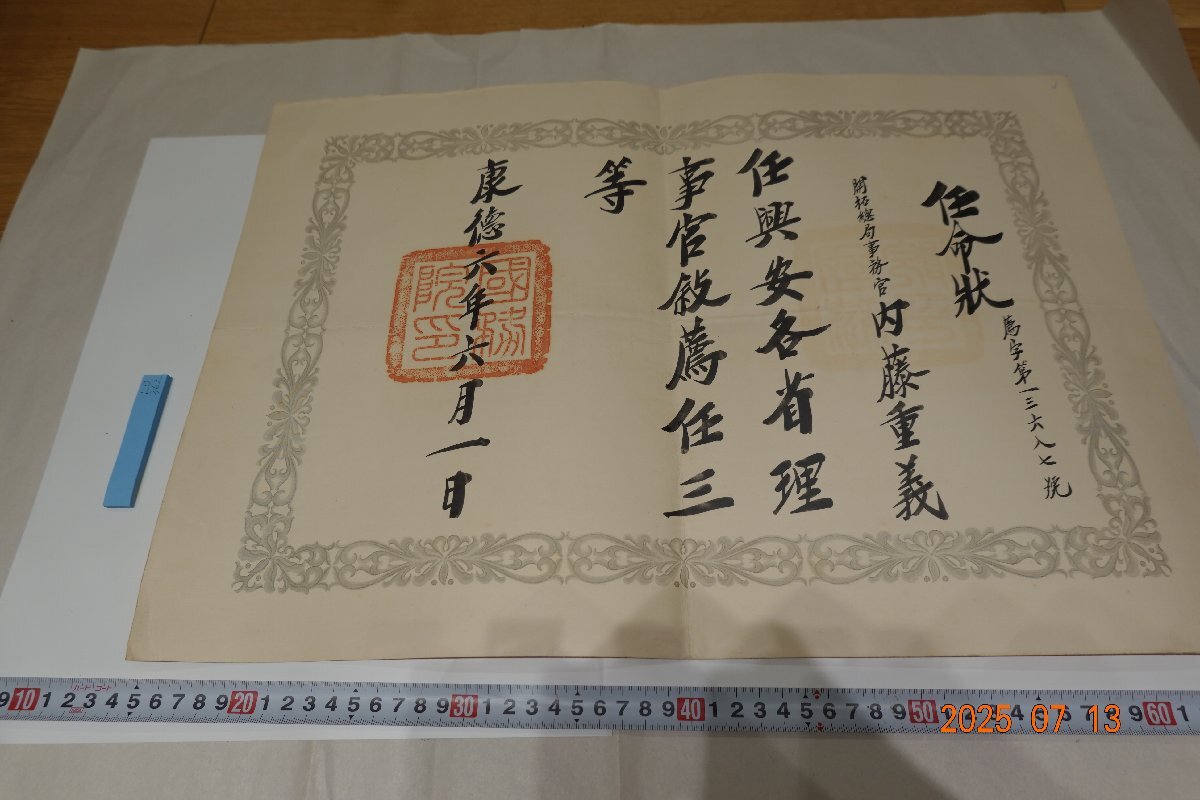 任命狀
薦字第一三六八七號
開拓總局事務官 内藤重義
任興安各省理
事官敍薦任三
等
康德六年六月一日
國務院印
9 10 1 2 3 4 5 6 7 8 9 20 1 2 3 4 5 6 7 8 9 30 1 2 3 4 5 6 7 8 9 40 1 2 3 4 5 6 7 8 9 50 4 5 6 7 8 9 60 1
2025 07 13